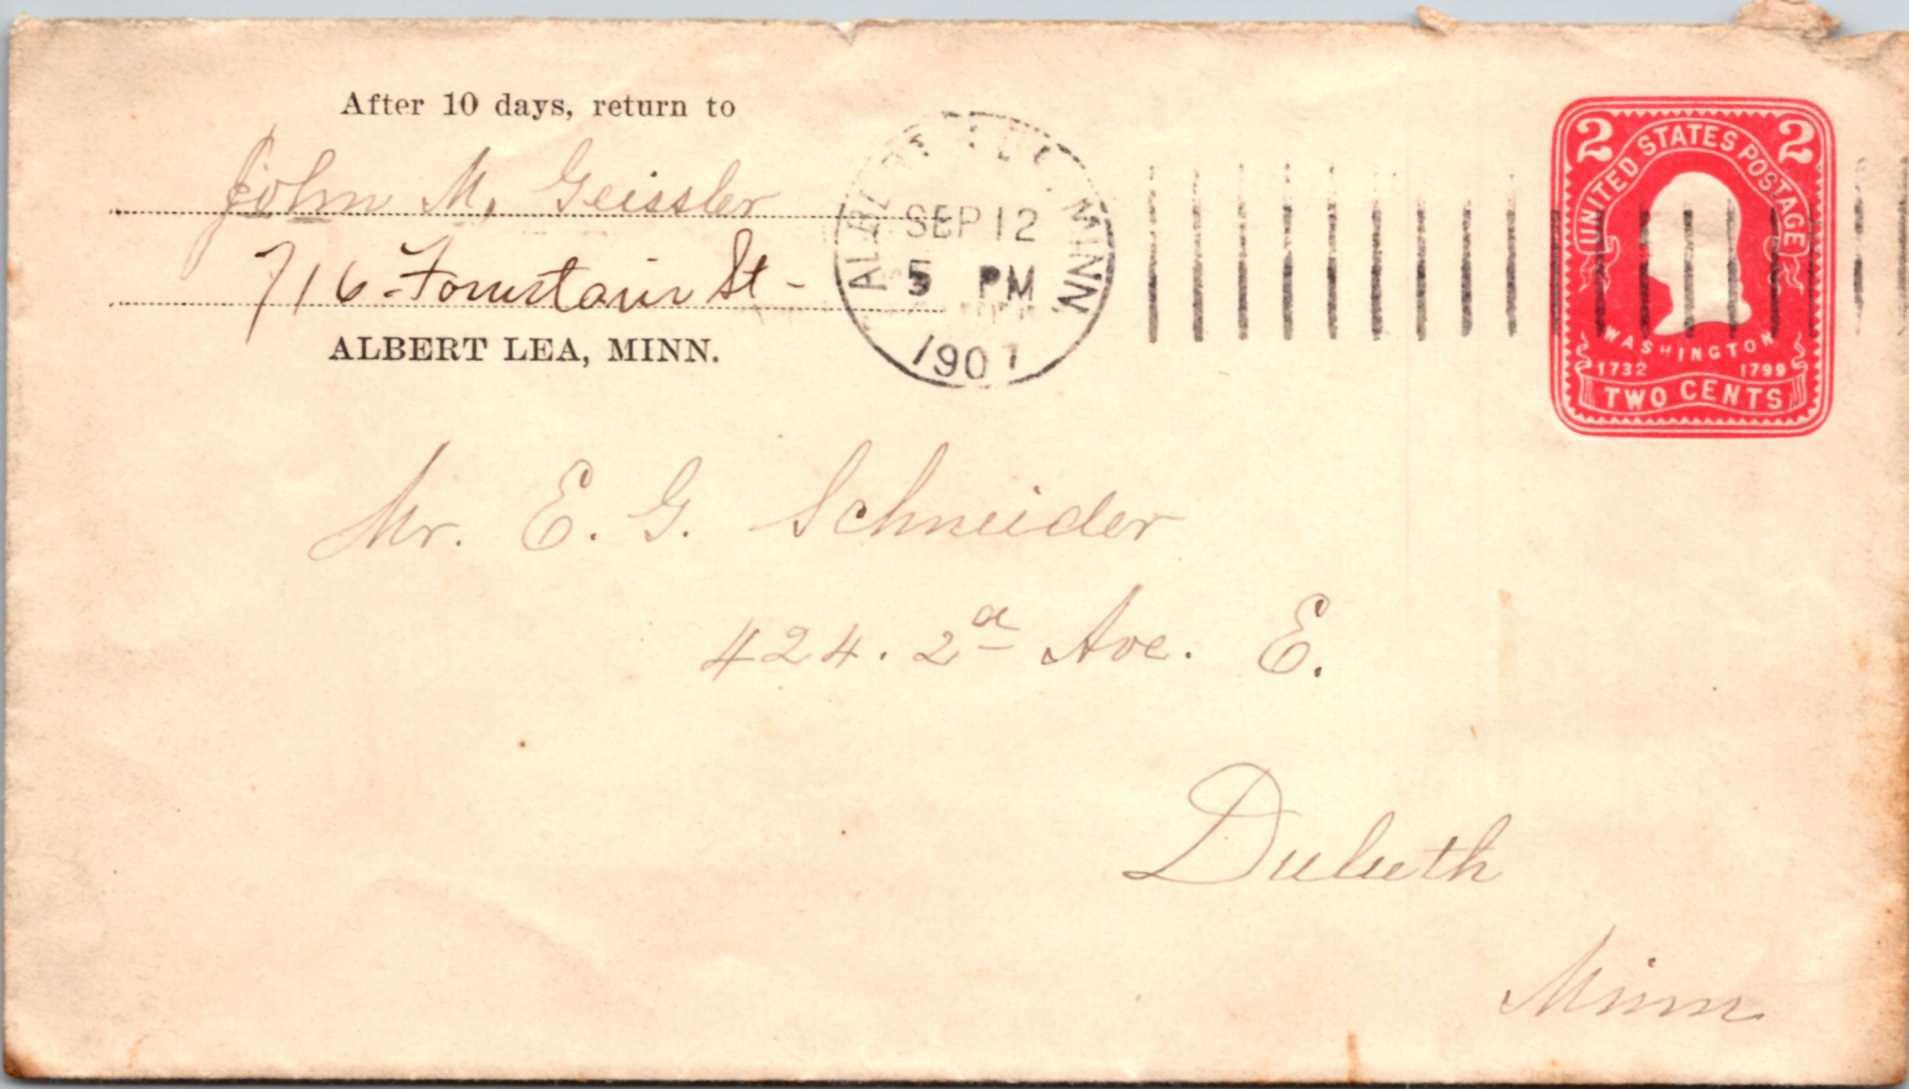 After 10 days, return to
John M. Geissler
716 Fountain St -
ALBERT LEA, MINN.
ALBERT LEA, MINN
SEP 12
5 PM
1907
2 UNITED STATES POSTAGE 2
WASHINGTON
1732 1799
TWO CENTS
Mr. E. G. Schneider
424. 2d Ave. E.
Duluth
Minn